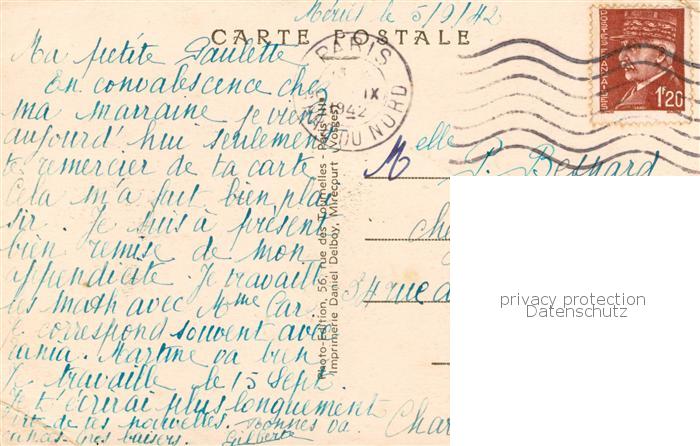 Mériel le 5/9/42
CARTE POSTALE
Ma petite Paulette
En convalescence che
ma marraine je vien
aujourd'hui seulement
te remercier de ta carte
Cela m'a fait bien plai
sir. Je suis à présent
bien remise de mon
appendicite. Je travaill
les math avec Mme Car.
Je correspond souvent avec
Tania. Martine va bien
Je travaille le 15 Sept.
Je t'écrirai plus longuement
de tes nouvelles. Bonnes va
très baisers. Gilberte
Photo-Edition, 56, rue des Tournelles - Paris
Imprimerie Daniel Delboy, Mirecourt (Vosges)
PARIS
IX
1942
DU NORD
1f20
Melle P. Besnard
che
34 rue d
Char
privacy protection
Datenschutz